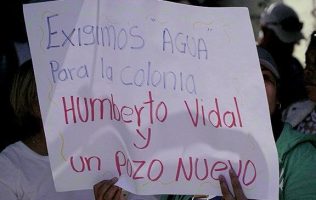 Exigimos "AGUA"
Para la colonia
HUMBERTO VIDAL
y
UN POZO NUEVO